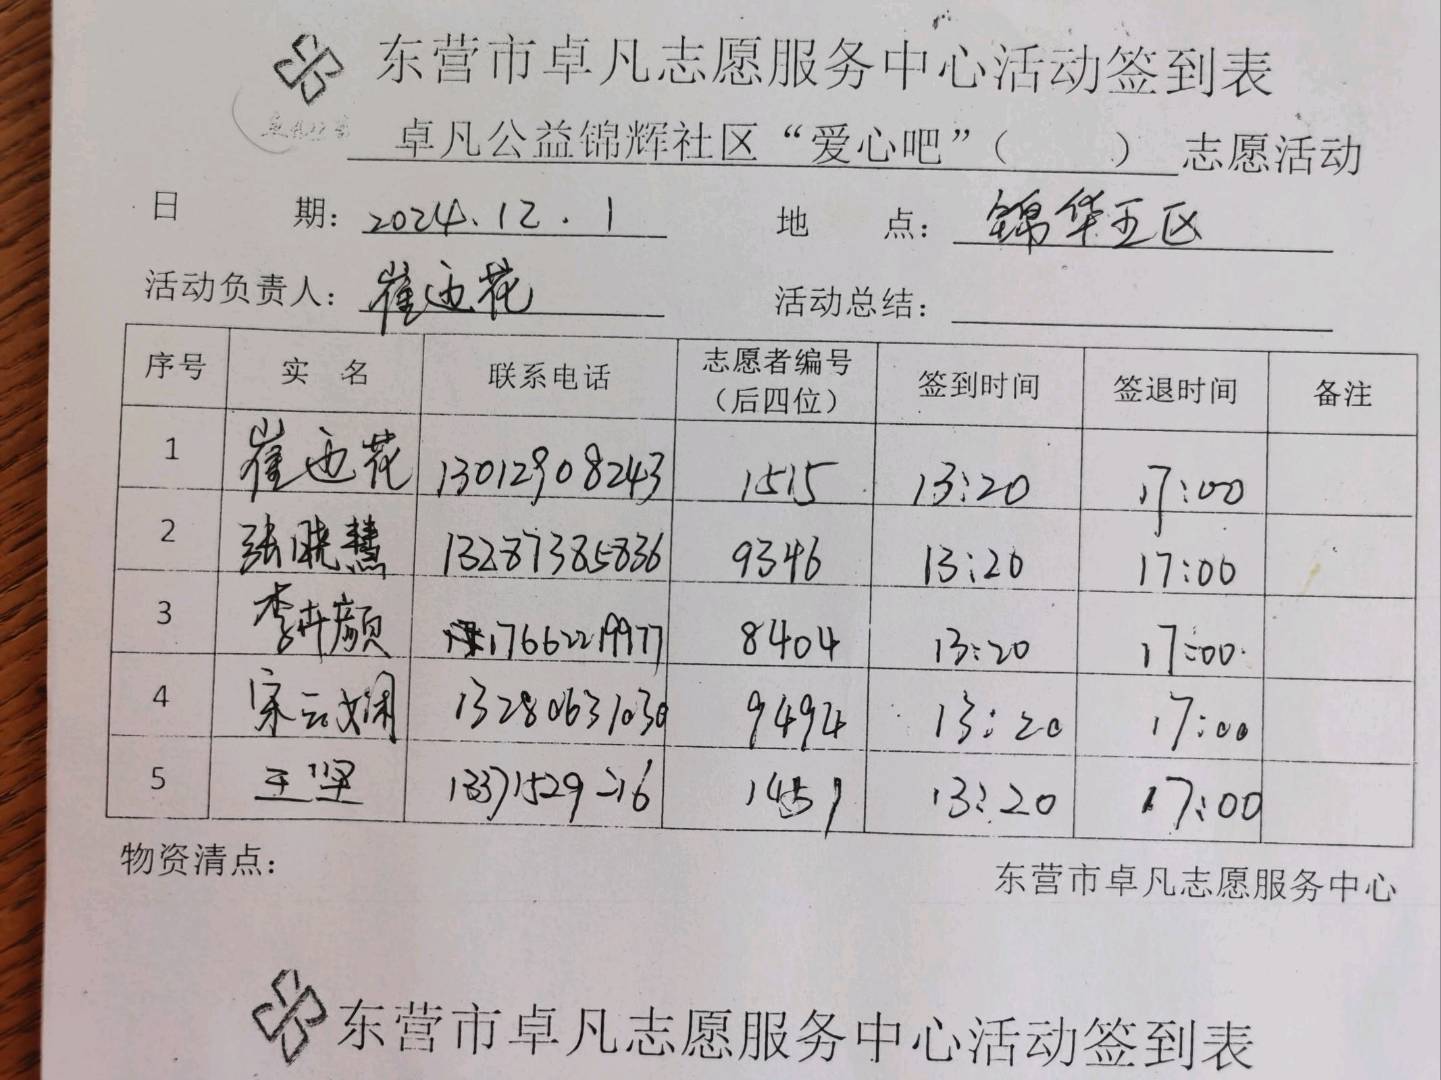 东营市卓凡志愿服务中心活动签到表
卓凡公益锦辉社区“爱心吧”（ ）志愿活动
日 期：2024.12.1 地 点：锦华五区
活动负责人：崔迎花 活动总结：
序号 实 名 联系电话 志愿者编号（后四位） 签到时间 签退时间 备注
1 崔迎花 13012908243 1515 13:20 17:00
2 张晓慧 13287385836 9346 13:20 17:00
3 李卉颜 17662219977 8404 13:20 17:00
4 宋云娴 13280631030 9494 13:20 17:00
5 王坚 1451 13:20 17:00
物资清点： 东营市卓凡志愿服务中心
东营市卓凡志愿服务中心活动签到表